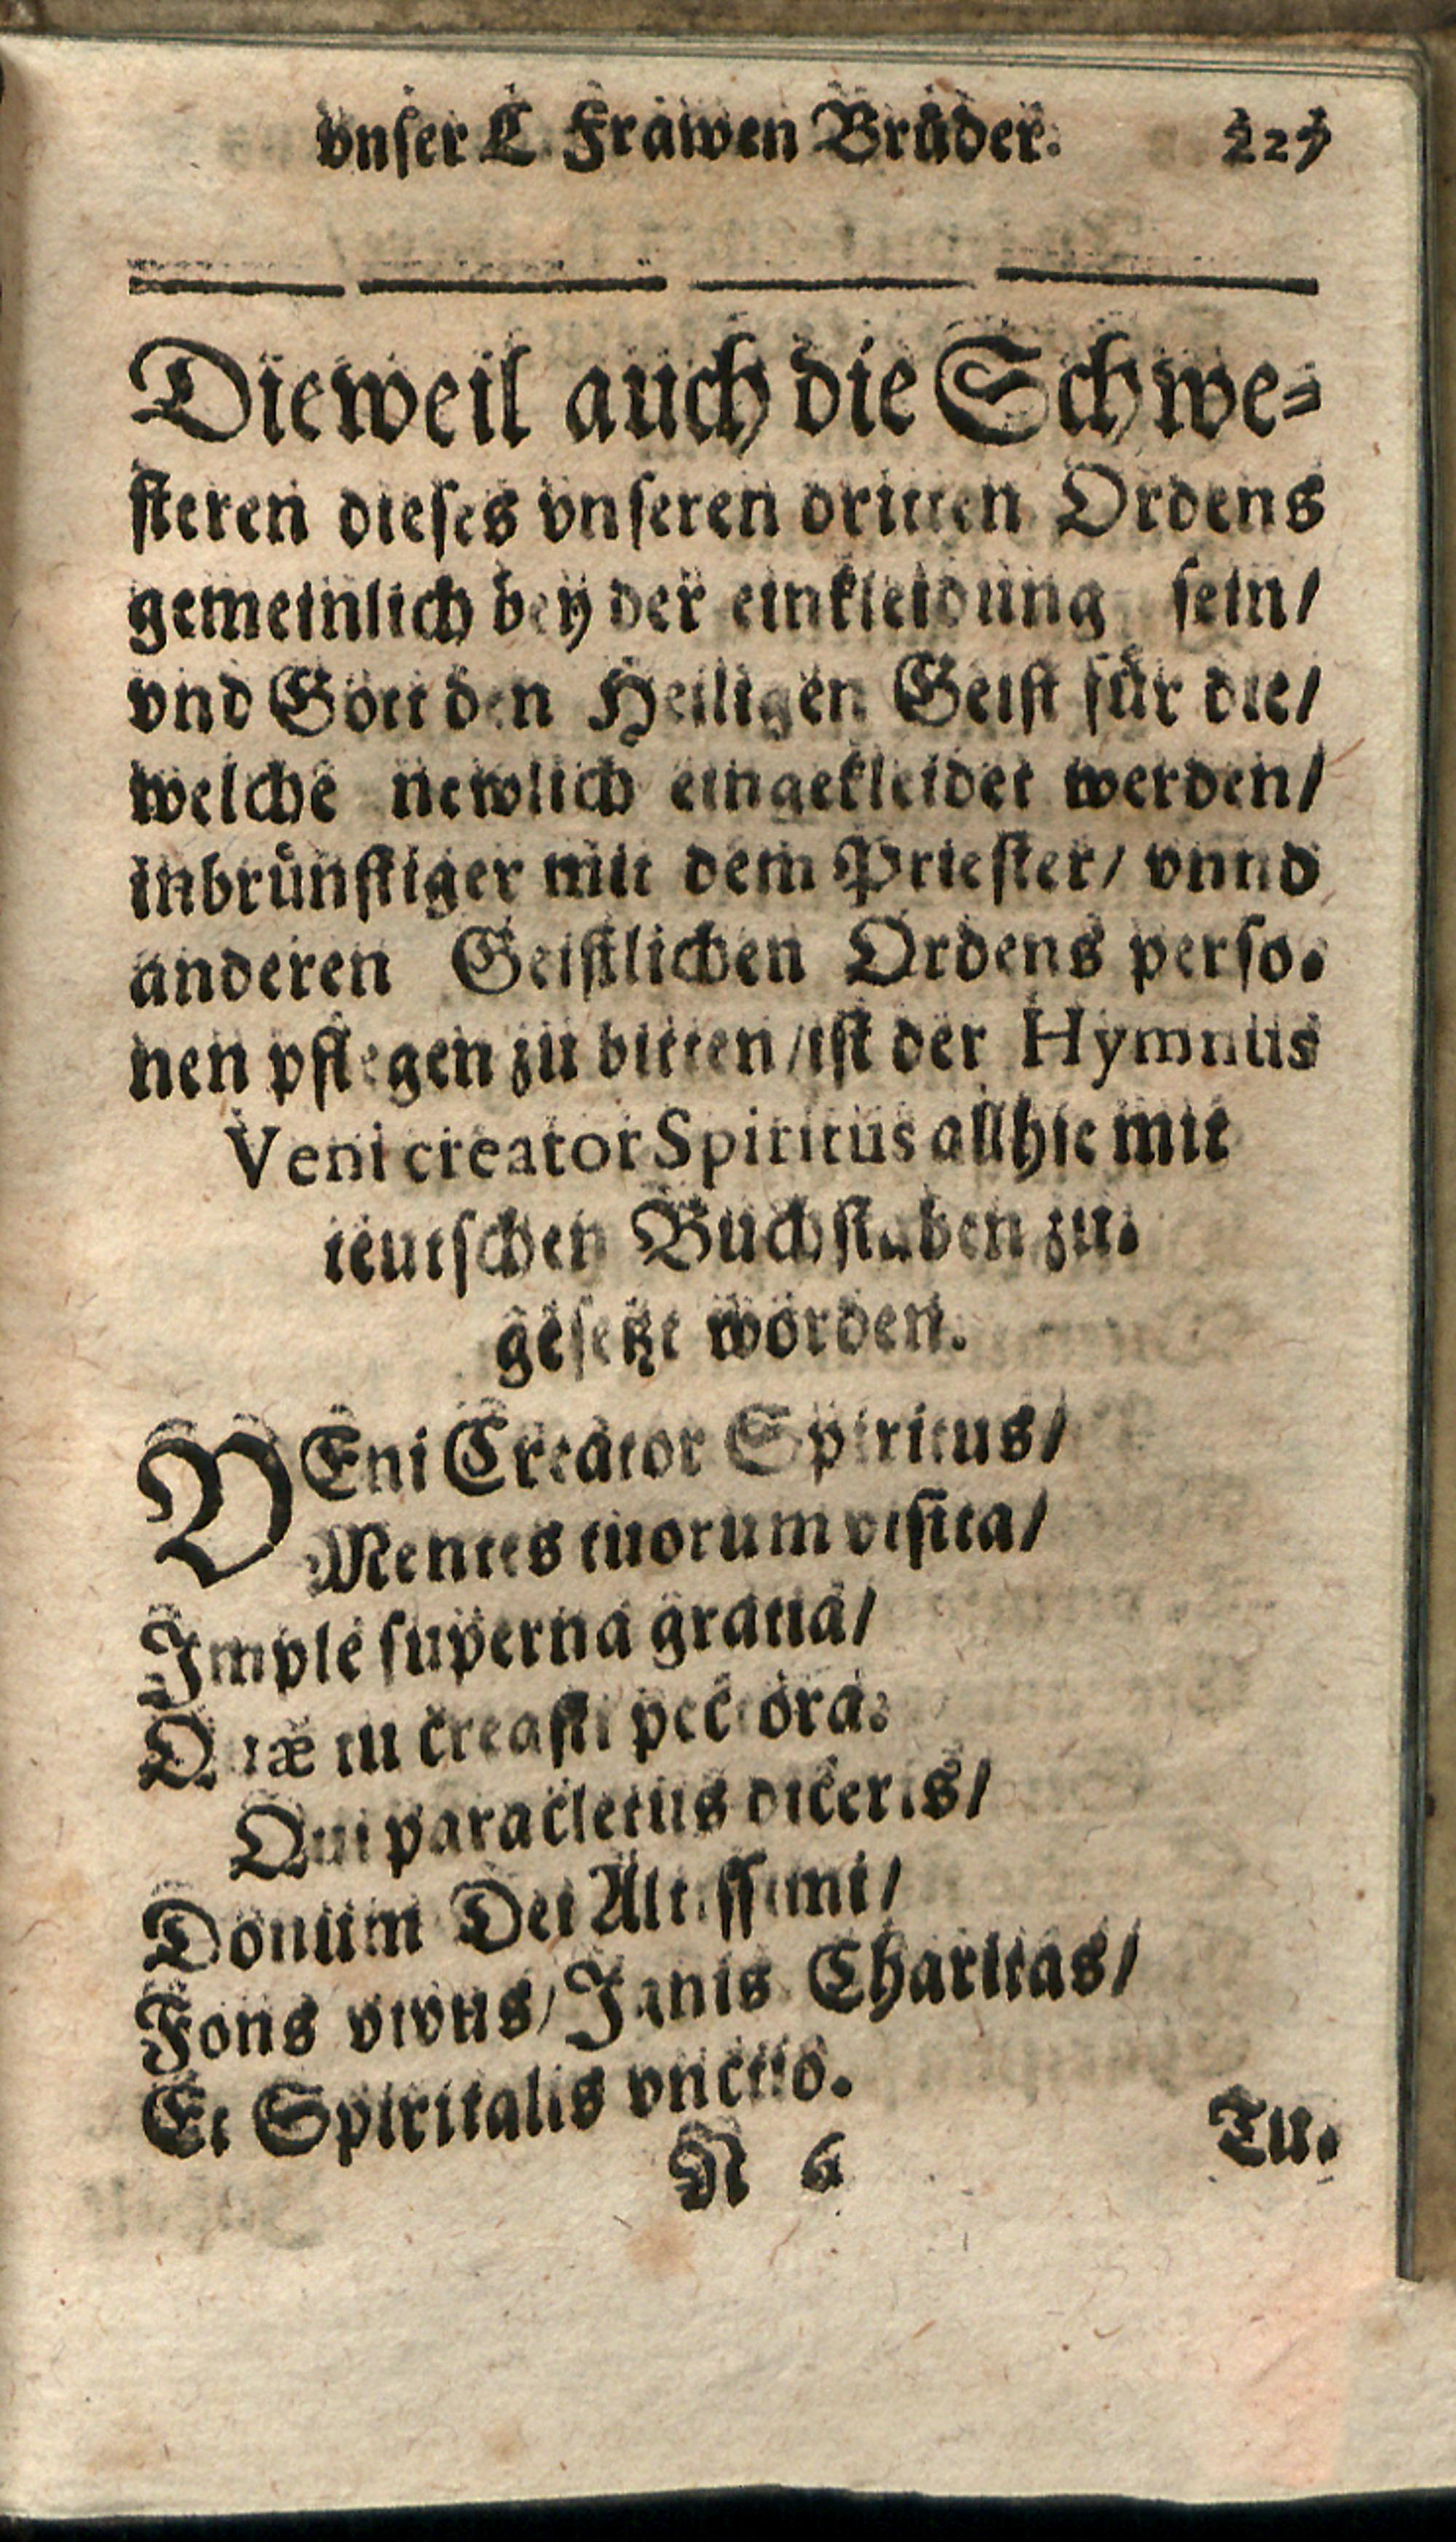 vnser L. Frawen Brüder. 225
Dieweil auch die Schwe-
steren dieses vnseren dritten Ordens
gemeinlich bey der einkleidung sein/
vnd Gott den Heiligen Geist für die/
welche newlich eingekleidet werden/
inbrünstiger mit dem Priester/ vnnd
anderen Geistlichen Ordens perso-
nen pflegen zu bitten/ ist der Hymnus
Veni creator Spiritus allhie mit
teutschen Buchstaben zu-
gesetzt worden.
VEni Creator Spiritus/
Mentes tuorum visita/
Imple superna gratia/
Quæ tu creasti pectora.
Qui paracletus diceris/
Donum Dei Altissimi/
Fons vivus/ Ignis Charitas/
Et Spiritalis vnctio.
K 6 Tu.